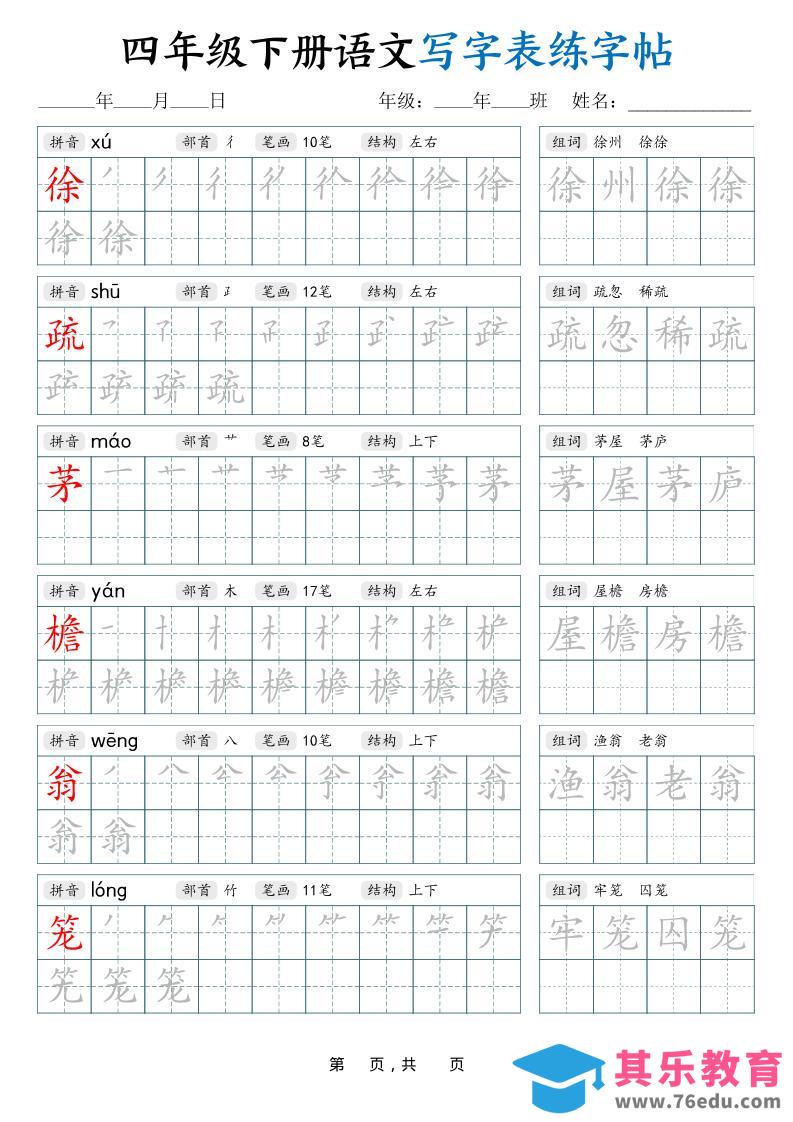 四年级下册语文写字表练字帖
______年____月____日 年级：____年____班 姓名：____________
拼音 xú 部首 彳 笔画 10笔 结构 左右 组词 徐州 徐徐
徐 徐 州 徐 徐
徐
拼音 shū 部首 𤴔 笔画 12笔 结构 左右 组词 疏忽 稀疏
疏 疏 忽 稀 疏
疏
拼音 máo 部首 艹 笔画 8笔 结构 上下 组词 茅屋 茅庐
茅 茅 茅 屋 茅 庐
拼音 yán 部首 木 笔画 17笔 结构 左右 组词 屋檐 房檐
檐 屋 檐 房 檐
檐
拼音 wēng 部首 八 笔画 10笔 结构 上下 组词 渔翁 老翁
翁 渔 翁 老 翁
翁
拼音 lóng 部首 竹 笔画 11笔 结构 上下 组词 牢笼 囚笼
笼 牢 笼 囚 笼
笼
第 页，共 页
其乐教育
www.76edu.com